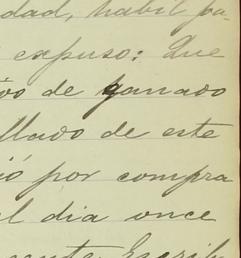 dad, habil pa-
expuso: Que
de ganado
llado de este
ó por compra
el dia once
Escrib